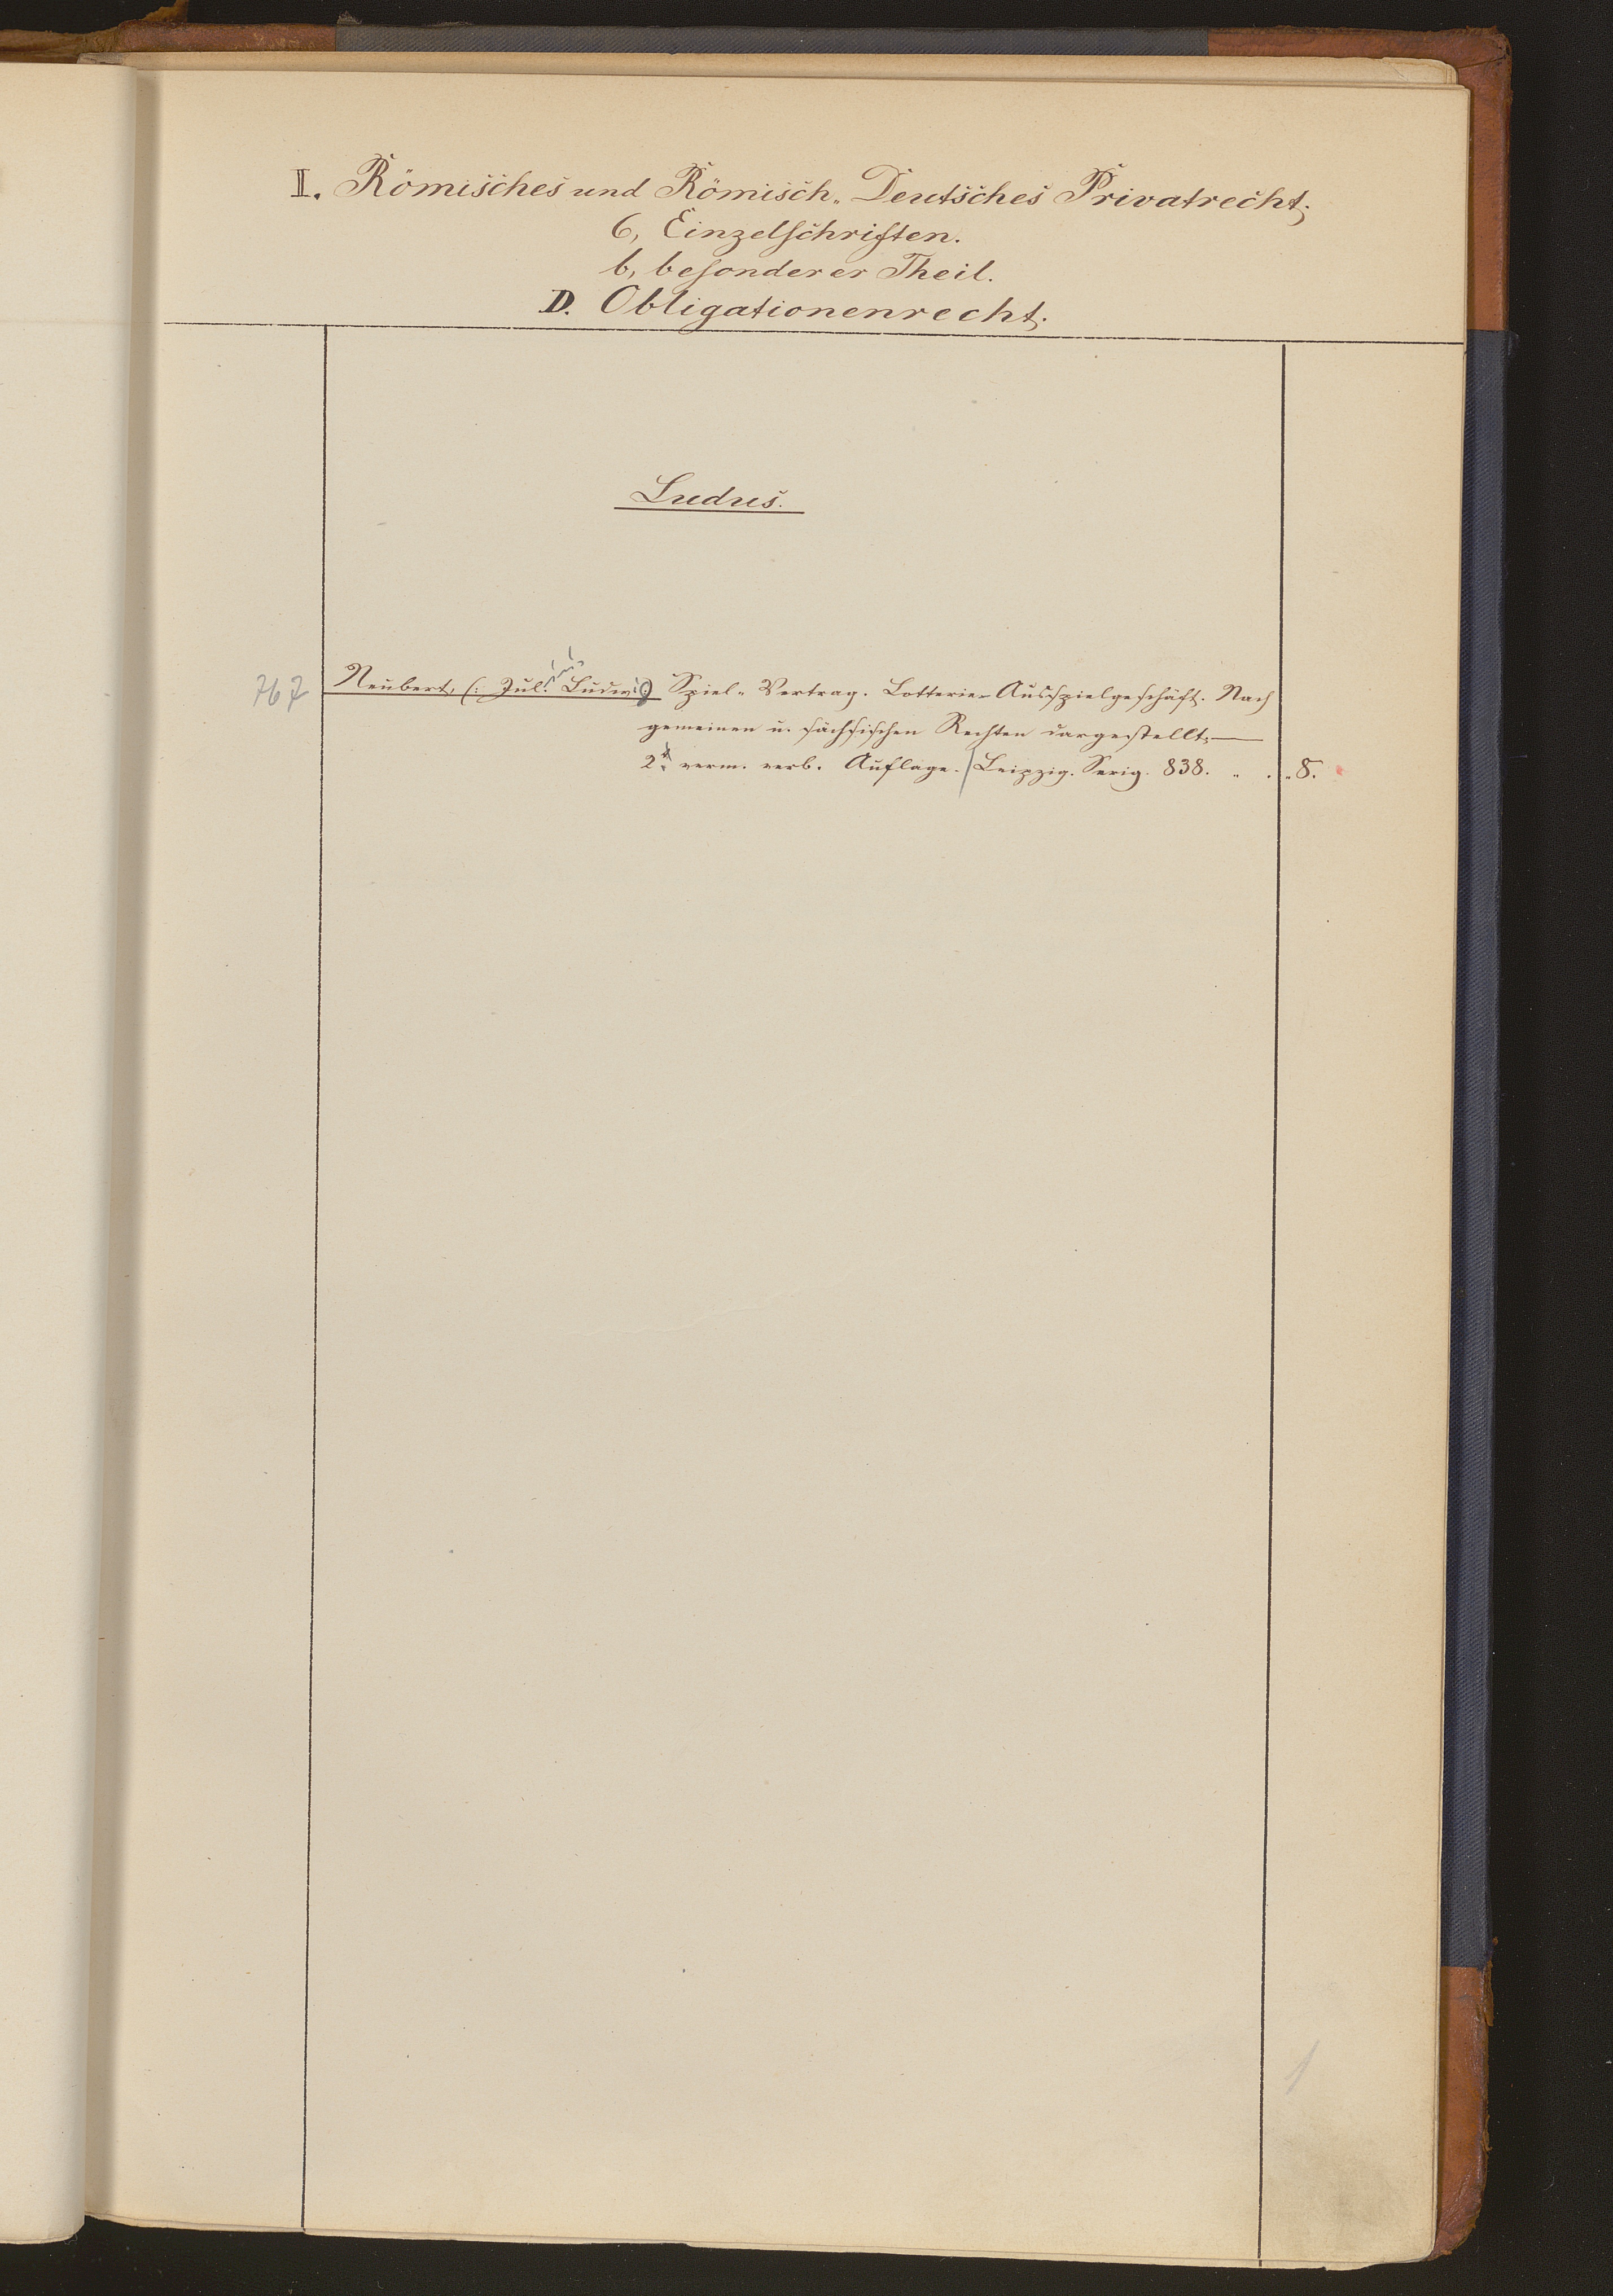 I. Römisches und Römisch-Deutsches Privatrecht.
6, Einzelschriften.
b, besonderer Theil.
D. Obligationenrecht.
Ludus.
767 Neubert, (: Jul. Ludwig) Spiel-Vertrag. Lotterie- Ausspielgeschäft. Nach
gemeinen u. sächsischen Rechten dargestellt.—
2t. verm. verb. Auflage. Leipzig. Serig. 838. 8.